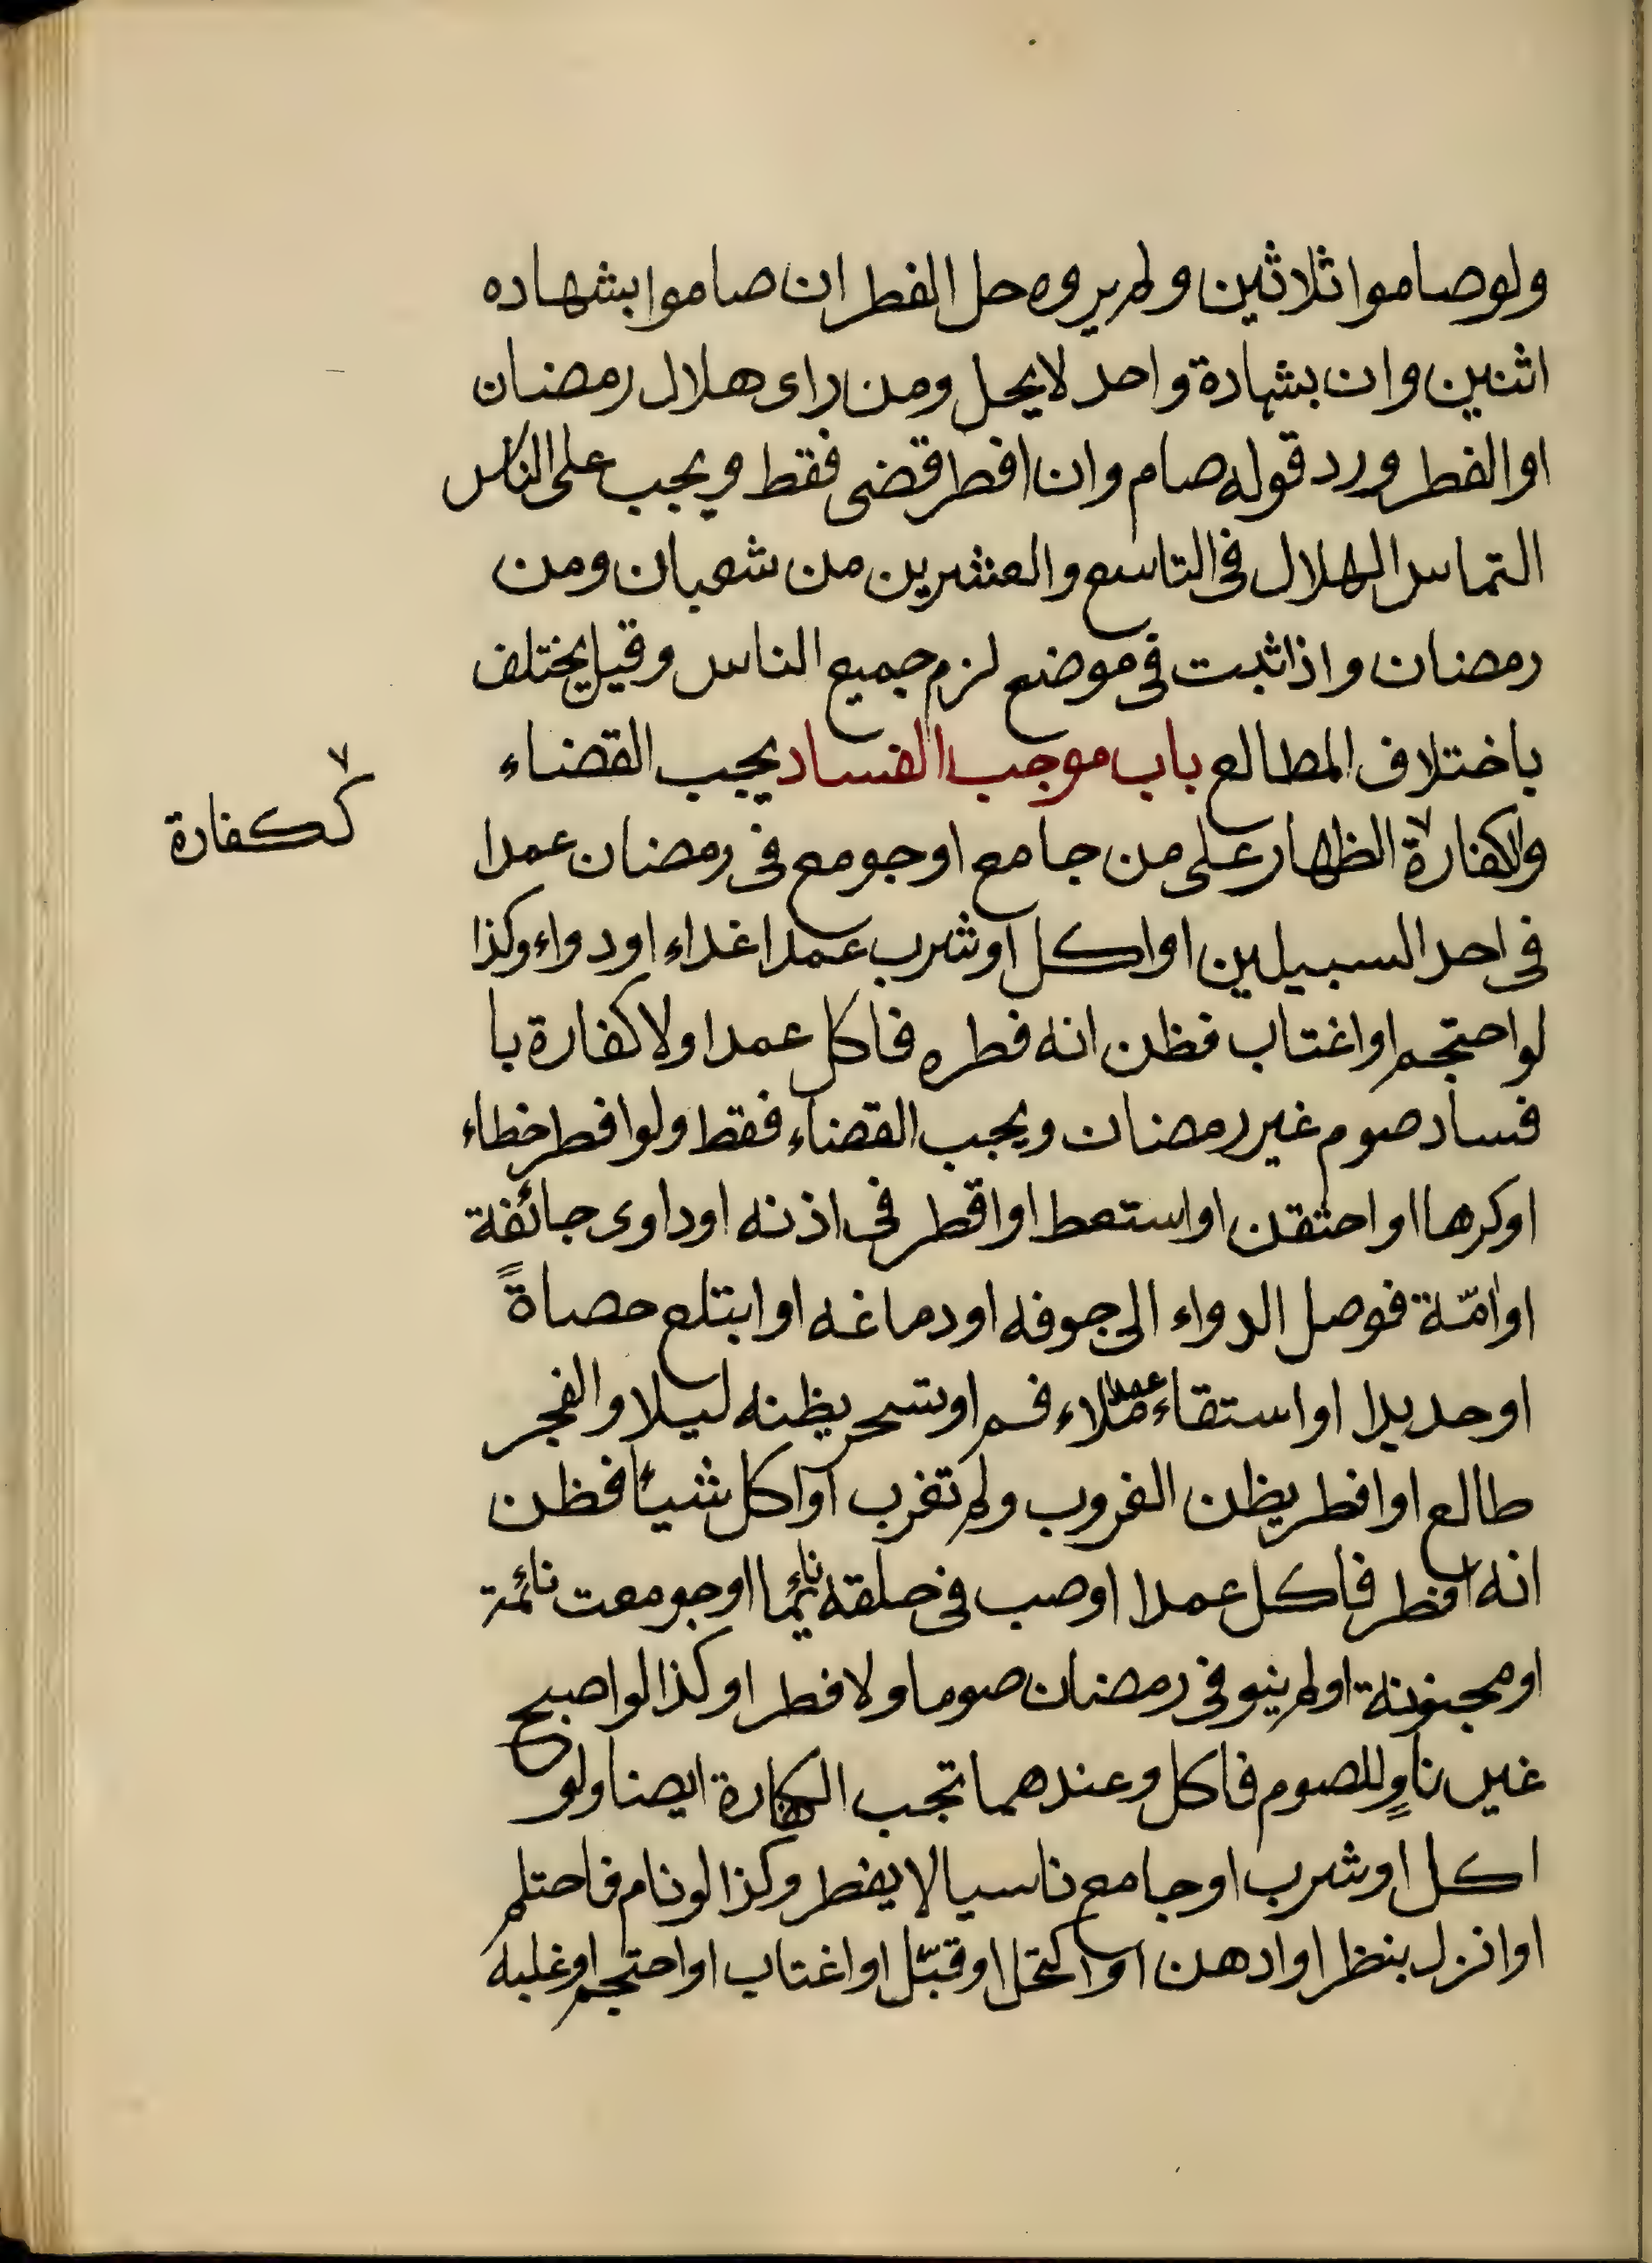 ولو صاموا ثلاثين ولم يروه حل الفطر ان صاموا بشهاده
اثنين وان بشهادة واحد لا يحل ومن راى هلال رمضان
او الفطر ورد قوله صام وان افطر قضى فقط ويجب على الناس
التماس الهلال فى التاسع والعشرين من شعبان ومن
رمضان واذا ثبت فى موضع لزم جميع الناس وقيل يختلف
باختلاف المطالع باب موجب الفساد يجب القضاء
والكفارة ٧ الظهار على من جامع او جومع فى رمضان عمدا
٧
ككفارة
فى احد السبيلين او اكل او شرب عمدا غداء او دواء وكذا
لو احتجم او اغتاب فظن انه فطره فاكل عمدا ولا كفارة با
فساد صوم غير رمضان ويجب القضاء فقط ولو افطر خطاء
او كرها او احتقن او استعط او اقطر فى اذنه او داوى جائفة
او امّة فوصل الدواء الى جوفه او دماغه او ابتلع حصاةً
او حديدا او استقاء عمدا ملاء فم او تسحر يظنه ليلا والفجر
طالع او افطر يظن الغروب ولم تغرب او اكل شيئا فظن
انه افطر فاكل عمدا او صب فى حلقه نائما او جومعت نائمة
او مجنونة او لم ينو فى رمضان صوما ولا فطرا وكذا لو اصبح
غير ناوٍ للصوم فاكل وعندهما تجب الكفارة ايضا ولو
اكل او شرب او جامع ناسيا لا يفطر وكذا لو نام فاحتلم
او انزل بنظر او ادهن او اكتحل او قبّل او اغتاب او احتجم او غلبه